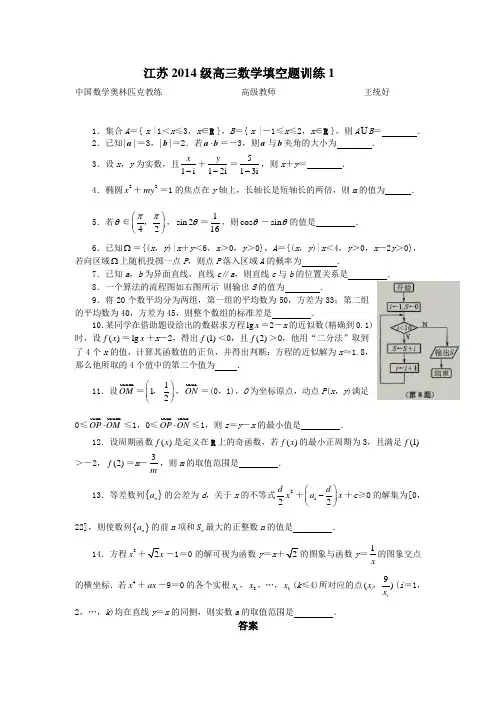 江苏2014级高三数学填空题训练1
中国数学奥林匹克教练 高级教师 王统好
1．集合A＝{ x |1＜x≤3，x∈R }，B＝{ x |－1≤x≤2，x∈R }，则A∪B＝ ．
2．已知|a|＝3，|b|＝2．若a·b＝－3，则a与b夹角的大小为 ．
3．设x，y为实数，且x/(1－i)＋y/(1－2i)＝5/(1－3i)，则x＋y＝ ．
4．椭圆x²＋my²＝1的焦点在y轴上，长轴长是短轴长的两倍，则m的值为 ．
5．若θ∈(π/4，π/2)，sin2θ＝1/16，则cosθ－sinθ的值是 ．
6．已知Ω＝{(x，y)|x＋y＜6，x＞0，y＞0}，A＝{(x，y)|x＜4，y＞0，x－2y＞0}，
若向区域Ω上随机投掷一点P，则点P落入区域A的概率为 ．
7．已知a，b为异面直线，直线c∥a，则直线c与b的位置关系是 ．
8．一个算法的流程图如右图所示 则输出S的值为 ．
9．将20个数平分为两组，第一组的平均数为50，方差为33；第二组
的平均数为40，方差为45，则整个数组的标准差是 ．
10.某同学在借助题设给出的数据求方程lgx＝2－x的近似数(精确到0.1)
时，设f(x)＝lgx＋x－2，得出f(1)＜0，且f(2)＞0，他用“二分法”取到
了4个x的值，计算其函数值的正负，并得出判断：方程的近似解为x≈1.8，
那么他所取的4个值中的第二个值为 ．
11．设OM＝(1，1/2)，ON＝(0，1)，O为坐标原点，动点P(x，y)满足
0≤OP·OM≤1，0≤OP·ON≤1，则z＝y－x的最小值是 ．
12．设周期函数f(x)是定义在R上的奇函数，若f(x)的最小正周期为3，且满足f(1)
＞－2，f(2)＝m－3/m，则m的取值范围是 ．
13．等差数列{aₙ}的公差为d，关于x的不等式d/2 x²＋(a₁－d/2)x＋c≥0的解集为[0，
22]，则使数列{aₙ}的前n项和Sₙ最大的正整数n的值是 ．
14．方程x²＋√2x－1＝0的解可视为函数y＝x＋√2的图象与函数y＝1/x的图象交点
的横坐标．若x⁴＋ax－9＝0的各个实根x₁，x₂，…，xₖ(k≤4)所对应的点(xᵢ，9/xᵢ)(i＝1，
2，…，k)均在直线y＝x的同侧，则实数a的取值范围是 ．
答案
开始
i←1,S←0
i<10
Y
N
S←S+i
输出S
i←i+1
结束
(第8题)